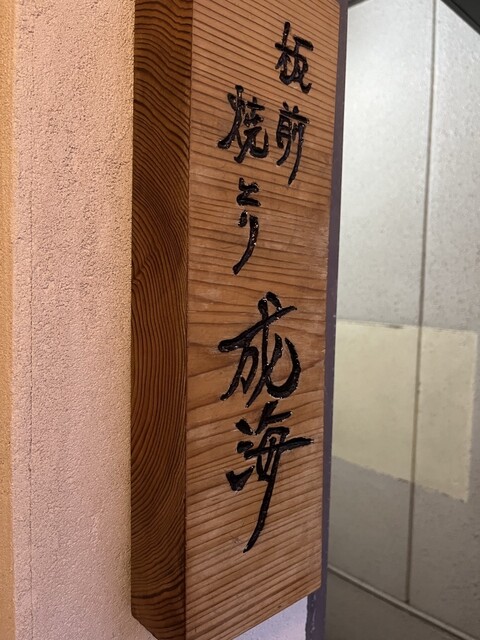 板前
焼とり
成海